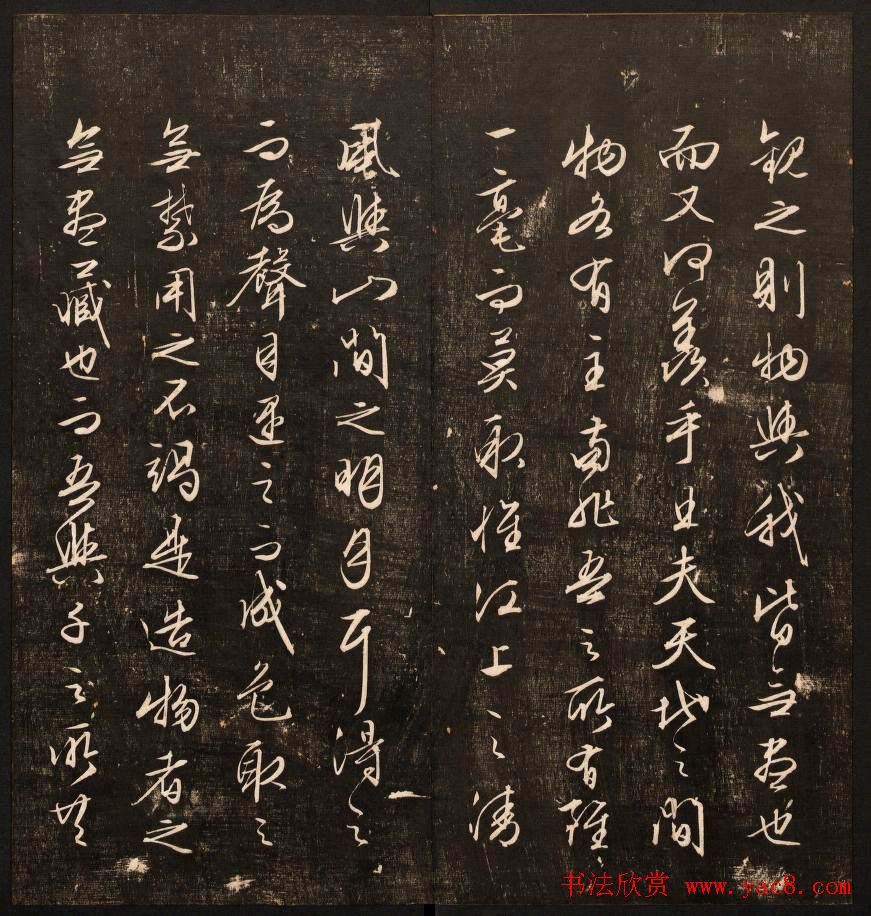 觀之則物與我皆無盡也
而又何羨乎且夫天地之間
物各有主苟非吾之所有雖
一毫而莫取惟江上之清
風與山間之明月耳得之
而為聲目遇之而成色取之
無禁用之不竭是造物者之
無盡藏也而吾與子之所共
书法欣赏 www.yac8.com